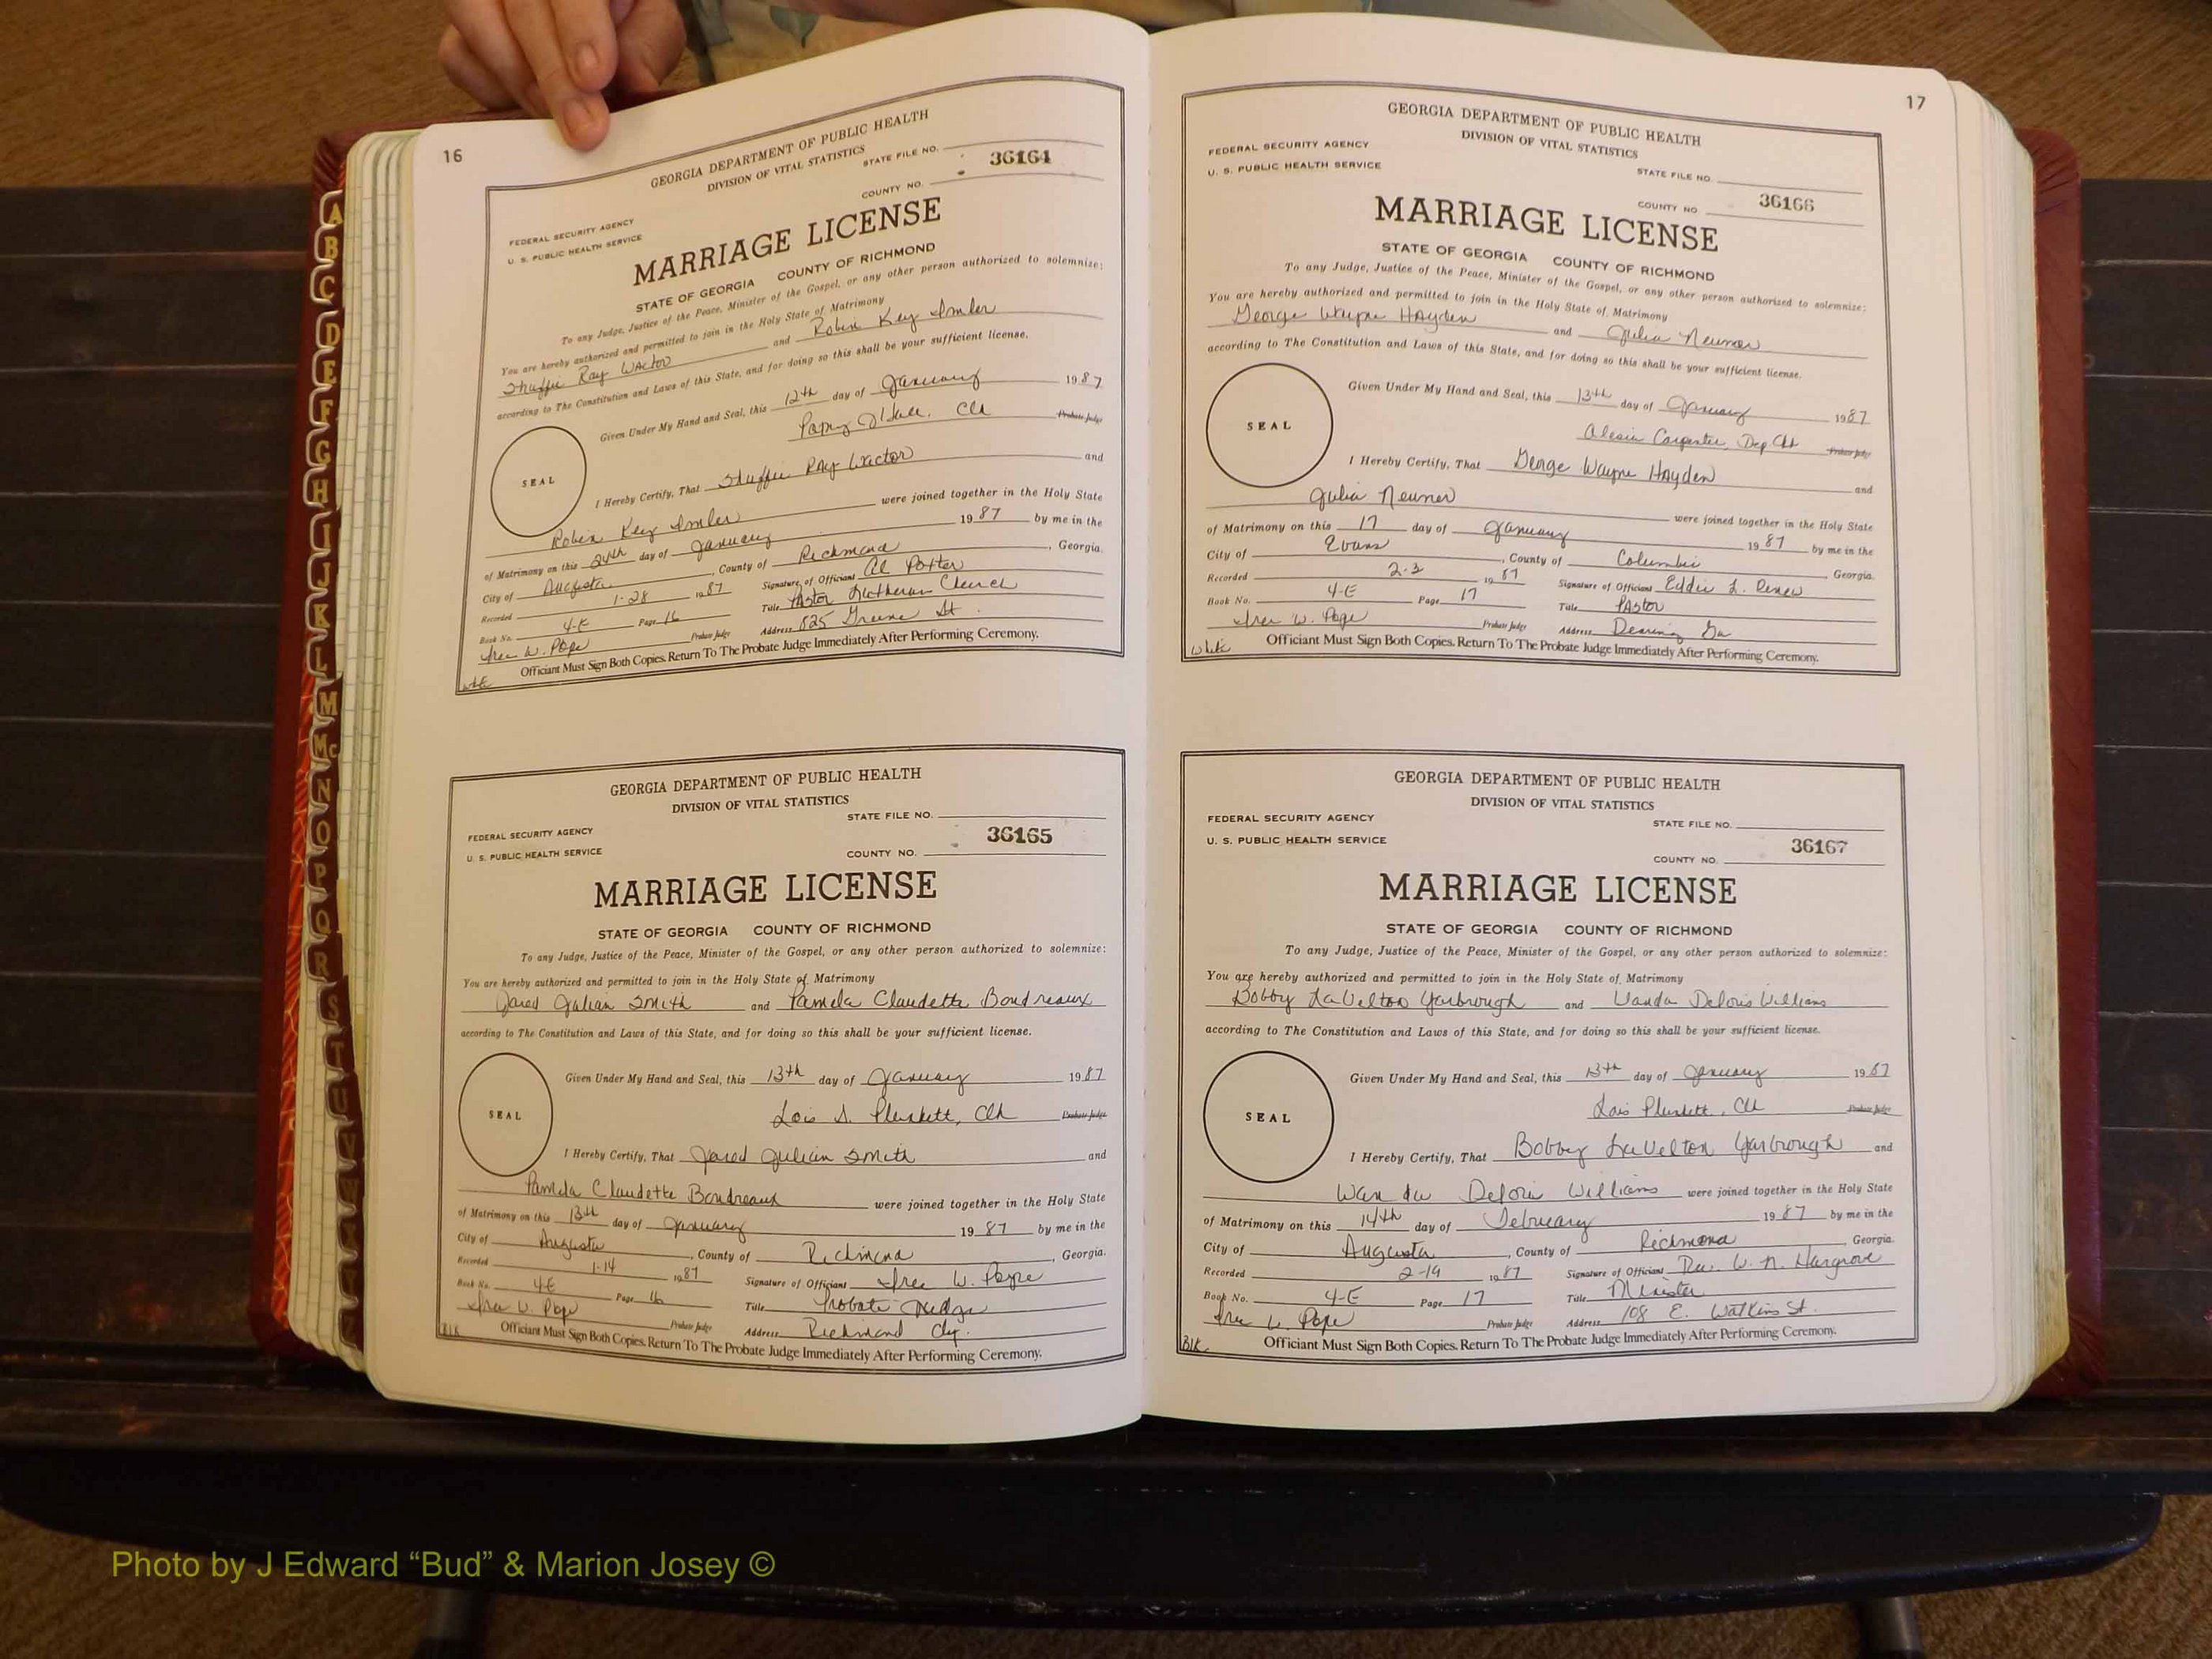 16
GEORGIA DEPARTMENT OF PUBLIC HEALTH
DIVISION OF VITAL STATISTICS
STATE FILE NO.
36164
COUNTY NO.
FEDERAL SECURITY AGENCY
U. S. PUBLIC HEALTH SERVICE
MARRIAGE LICENSE
STATE OF GEORGIA COUNTY OF RICHMOND
To any Judge, Justice of the Peace, Minister of the Gospel, or any other person authorized to solemnize:
You are hereby authorized and permitted to join in the Holy State of Matrimony
Ray Wactor and Robin Key
according to The Constitution and Laws of this State, and for doing so this shall be your sufficient license.
Given Under My Hand and Seal, this 12th day of January 1987
Clk Probate Judge
SEAL
I Hereby Certify, That Ray Wactor and
Robin Key were joined together in the Holy State
of Matrimony on this 24th day of January 1987 by me in the
City of Augusta, County of Richmond, Georgia.
Recorded 1-28 1987 Signature of Officiant Al
Book No. 4-E Page 16 Title Pastor Lutheran Church
W. Pope Probate Judge Address 825 Greene St.
Officiant Must Sign Both Copies. Return To The Probate Judge Immediately After Performing Ceremony.
GEORGIA DEPARTMENT OF PUBLIC HEALTH
DIVISION OF VITAL STATISTICS
STATE FILE NO.
FEDERAL SECURITY AGENCY
36165
U. S. PUBLIC HEALTH SERVICE
COUNTY NO.
MARRIAGE LICENSE
STATE OF GEORGIA COUNTY OF RICHMOND
To any Judge, Justice of the Peace, Minister of the Gospel, or any other person authorized to solemnize:
You are hereby authorized and permitted to join in the Holy State of Matrimony
Jared Julian Smith and Pamela Claudette Boudreaux
according to The Constitution and Laws of this State, and for doing so this shall be your sufficient license.
Given Under My Hand and Seal, this 13th day of January 1987
Lois S. Plunkett, Clk Probate Judge
SEAL
I Hereby Certify, That Jared Julian Smith and
Pamela Claudette Boudreaux were joined together in the Holy State
of Matrimony on this 13th day of January 1987 by me in the
City of Augusta, County of Richmond, Georgia.
Recorded 1-14 1987 Signature of Officiant W. Pope
Book No. 4-E Page 16 Title Probate Judge
W. Pope Probate Judge Address Richmond Cty.
Blk
Officiant Must Sign Both Copies. Return To The Probate Judge Immediately After Performing Ceremony.
17
GEORGIA DEPARTMENT OF PUBLIC HEALTH
DIVISION OF VITAL STATISTICS
FEDERAL SECURITY AGENCY
U. S. PUBLIC HEALTH SERVICE
STATE FILE NO.
36166
COUNTY NO
MARRIAGE LICENSE
STATE OF GEORGIA COUNTY OF RICHMOND
To any Judge, Justice of the Peace, Minister of the Gospel, or any other person authorized to solemnize:
You are hereby authorized and permitted to join in the Holy State of Matrimony
George Wayne Hayden and Julia Neuner
according to The Constitution and Laws of this State, and for doing so this shall be your sufficient license.
Given Under My Hand and Seal, this 13th day of January 1987
Alesia Carpenter, Dep Clk Probate Judge
SEAL
I Hereby Certify, That George Wayne Hayden and
Julia Neuner were joined together in the Holy State
of Matrimony on this 17 day of January 1987 by me in the
City of Evans, County of Columbia, Georgia.
Recorded 2-2 1987 Signature of Officiant Eddie L.
Book No. 4-E Page 17 Title Pastor
W. Pope Probate Judge Address Dearing Ga
White
Officiant Must Sign Both Copies. Return To The Probate Judge Immediately After Performing Ceremony.
GEORGIA DEPARTMENT OF PUBLIC HEALTH
DIVISION OF VITAL STATISTICS
FEDERAL SECURITY AGENCY
STATE FILE NO.
U. S. PUBLIC HEALTH SERVICE
36167
COUNTY NO.
MARRIAGE LICENSE
STATE OF GEORGIA COUNTY OF RICHMOND
To any Judge, Justice of the Peace, Minister of the Gospel, or any other person authorized to solemnize:
You are hereby authorized and permitted to join in the Holy State of Matrimony
Bobby LaVelton Yarbrough and Wanda Deloris Williams
according to The Constitution and Laws of this State, and for doing so this shall be your sufficient license.
Given Under My Hand and Seal, this 13th day of January 1987
Lois Plunkett, Clk Probate Judge
SEAL
I Hereby Certify, That Bobby LaVelton Yarbrough and
Wanda Deloris Williams were joined together in the Holy State
of Matrimony on this 14th day of February 1987 by me in the
City of Augusta, County of Richmond, Georgia.
Recorded 2-19 1987 Signature of Officiant Rev. W. N. Hargrove
Book No. 4-E Page 17 Title Minister
W. Pope Probate Judge Address 108 E. Watkins St.
Blk.
Officiant Must Sign Both Copies. Return To The Probate Judge Immediately After Performing Ceremony.
A
B
C
D
E
F
G
H
I
J
K
L
M
Mc
N
O
P
Q
R
S
T
U
V
Photo by J Edward “Bud” & Marion Josey ©